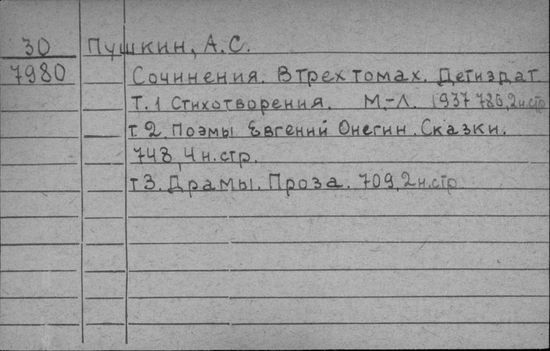 30 Пушкин, А.С.
7980 Сочинения. В трех томах. Детиздат
Т.1 Стихотворения. М.-Л. 1937 786, 2 н.стр
т 2. Поэмы Евгений Онегин. Сказки.
748, 4 н.стр.
т 3. Драмы. Проза. 709, 2 н.стр